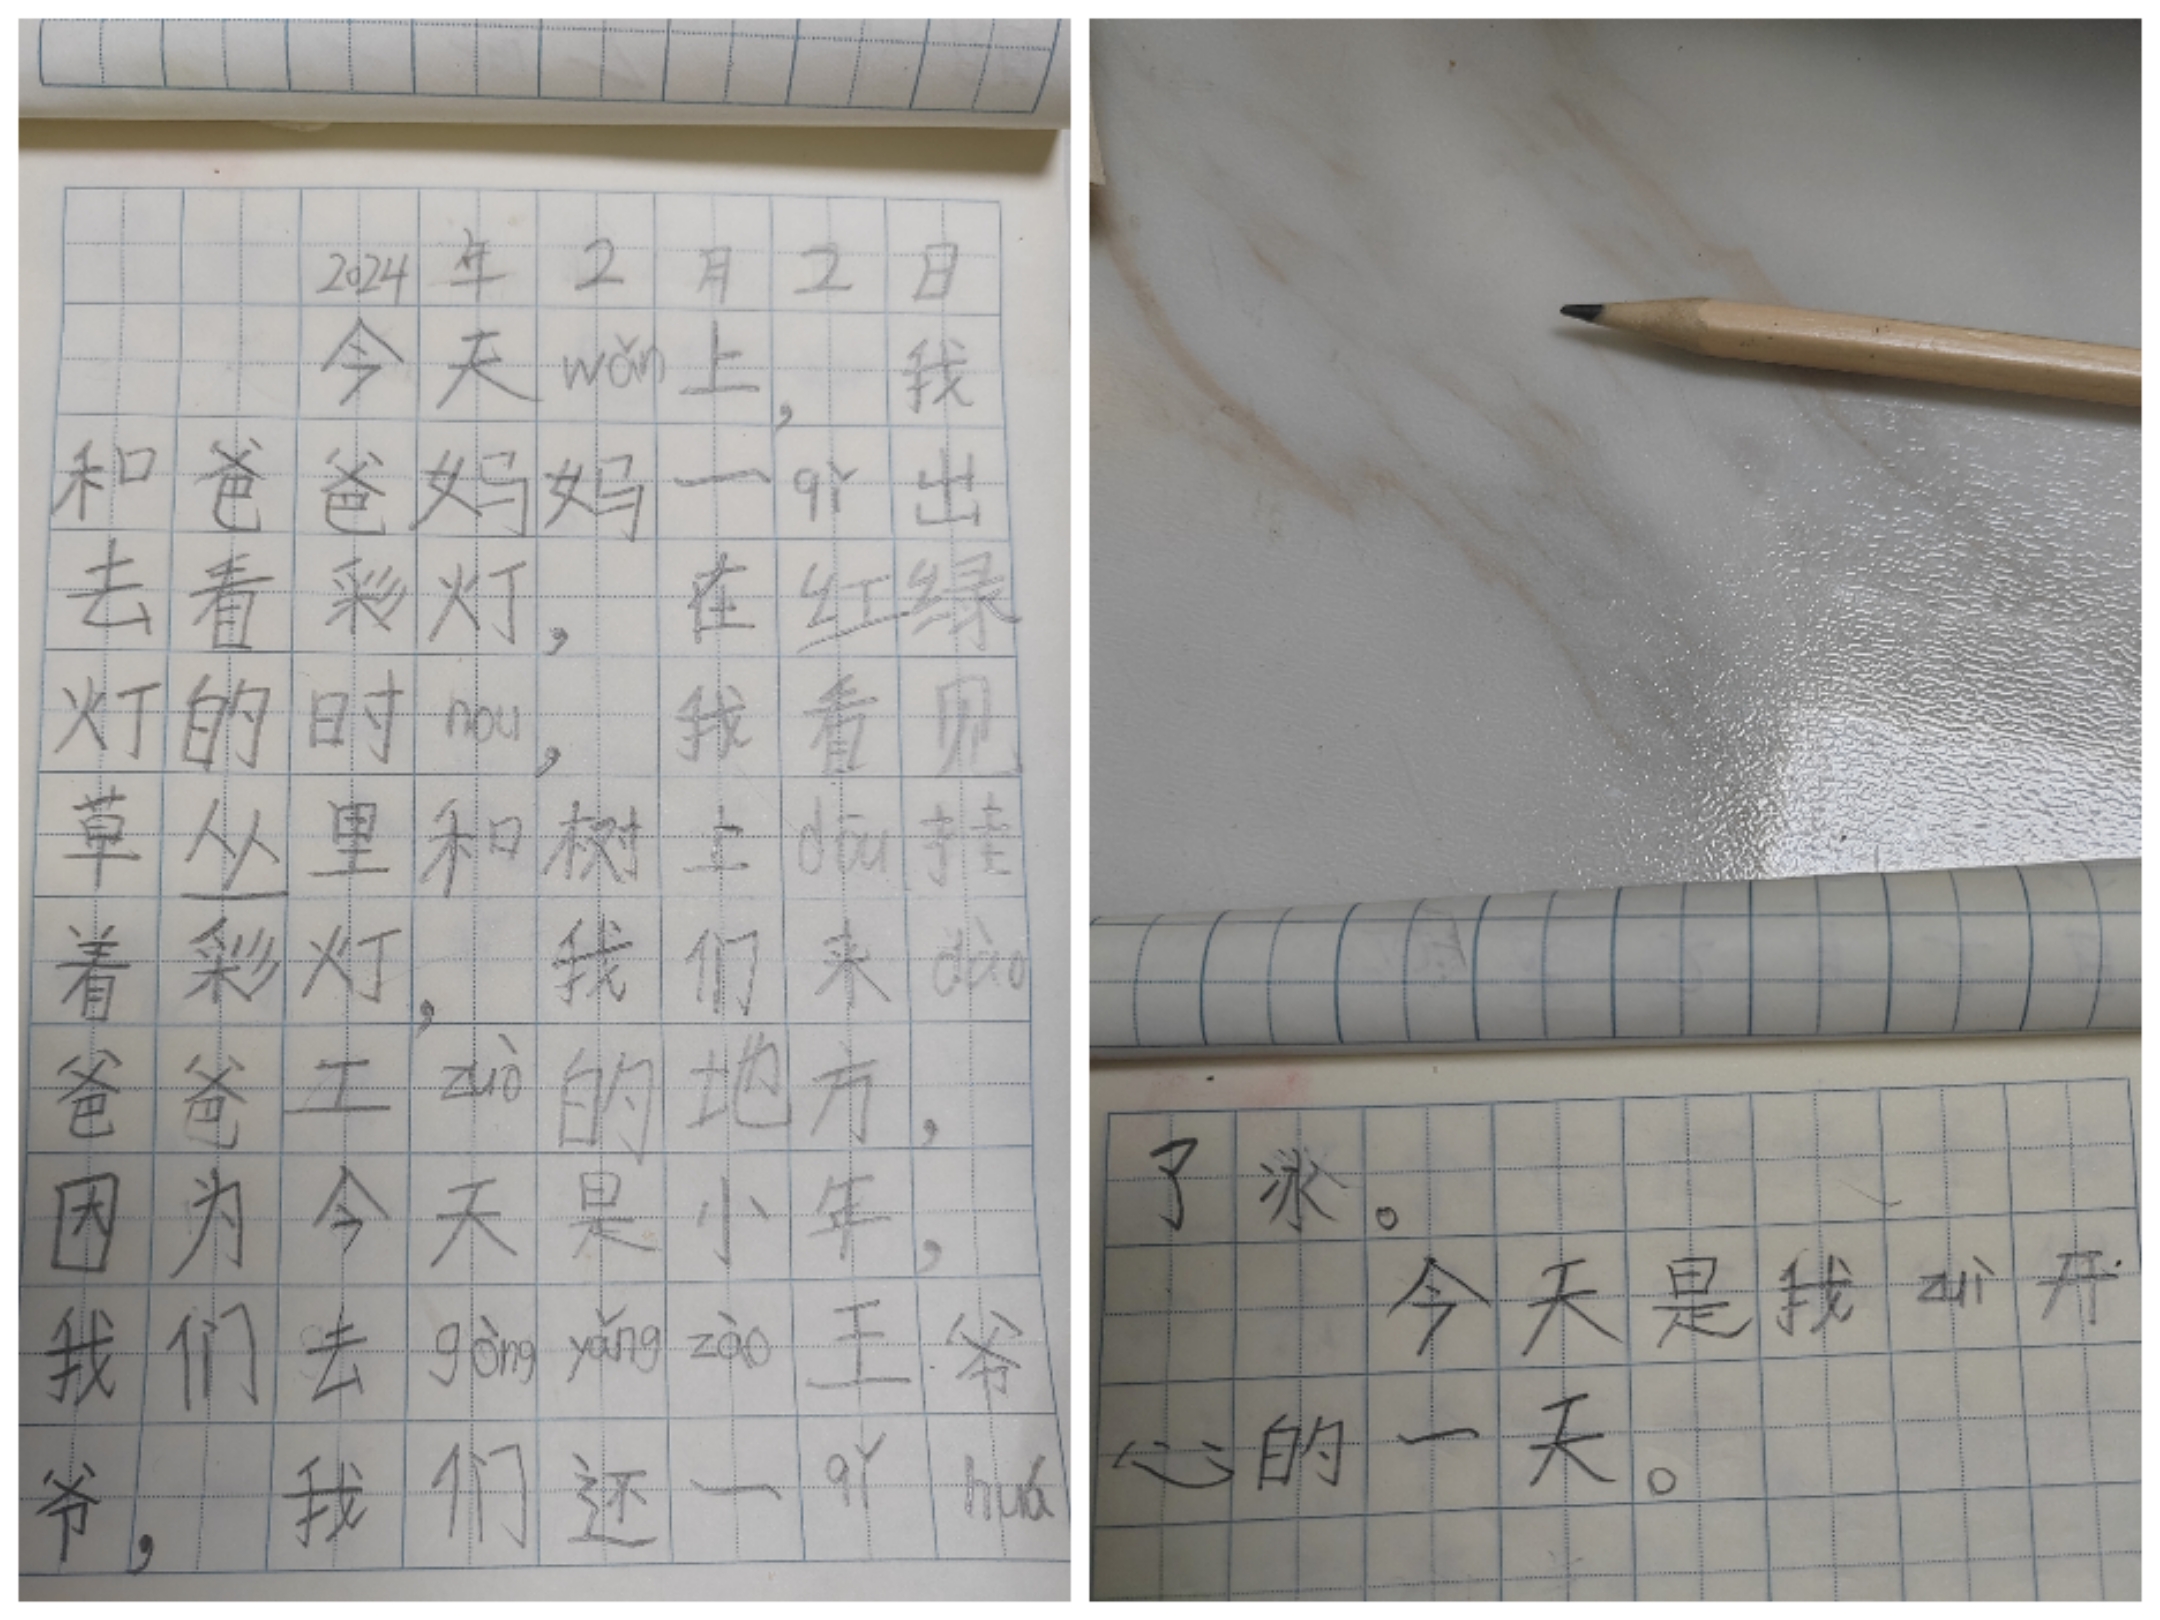 2024年2月2日
今天wǎn上，我
和爸爸妈妈一qǐ出
去看彩灯，在红绿
灯的时hou，我看见
草丛里和树上diu挂
着彩灯，我们来dào
爸爸工zuò的地方，
因为今天是小年，
我们去gòng yǎng zào王爷
爷，我们还一qǐ huá
了冰。
今天是我zuì开
心的一天。